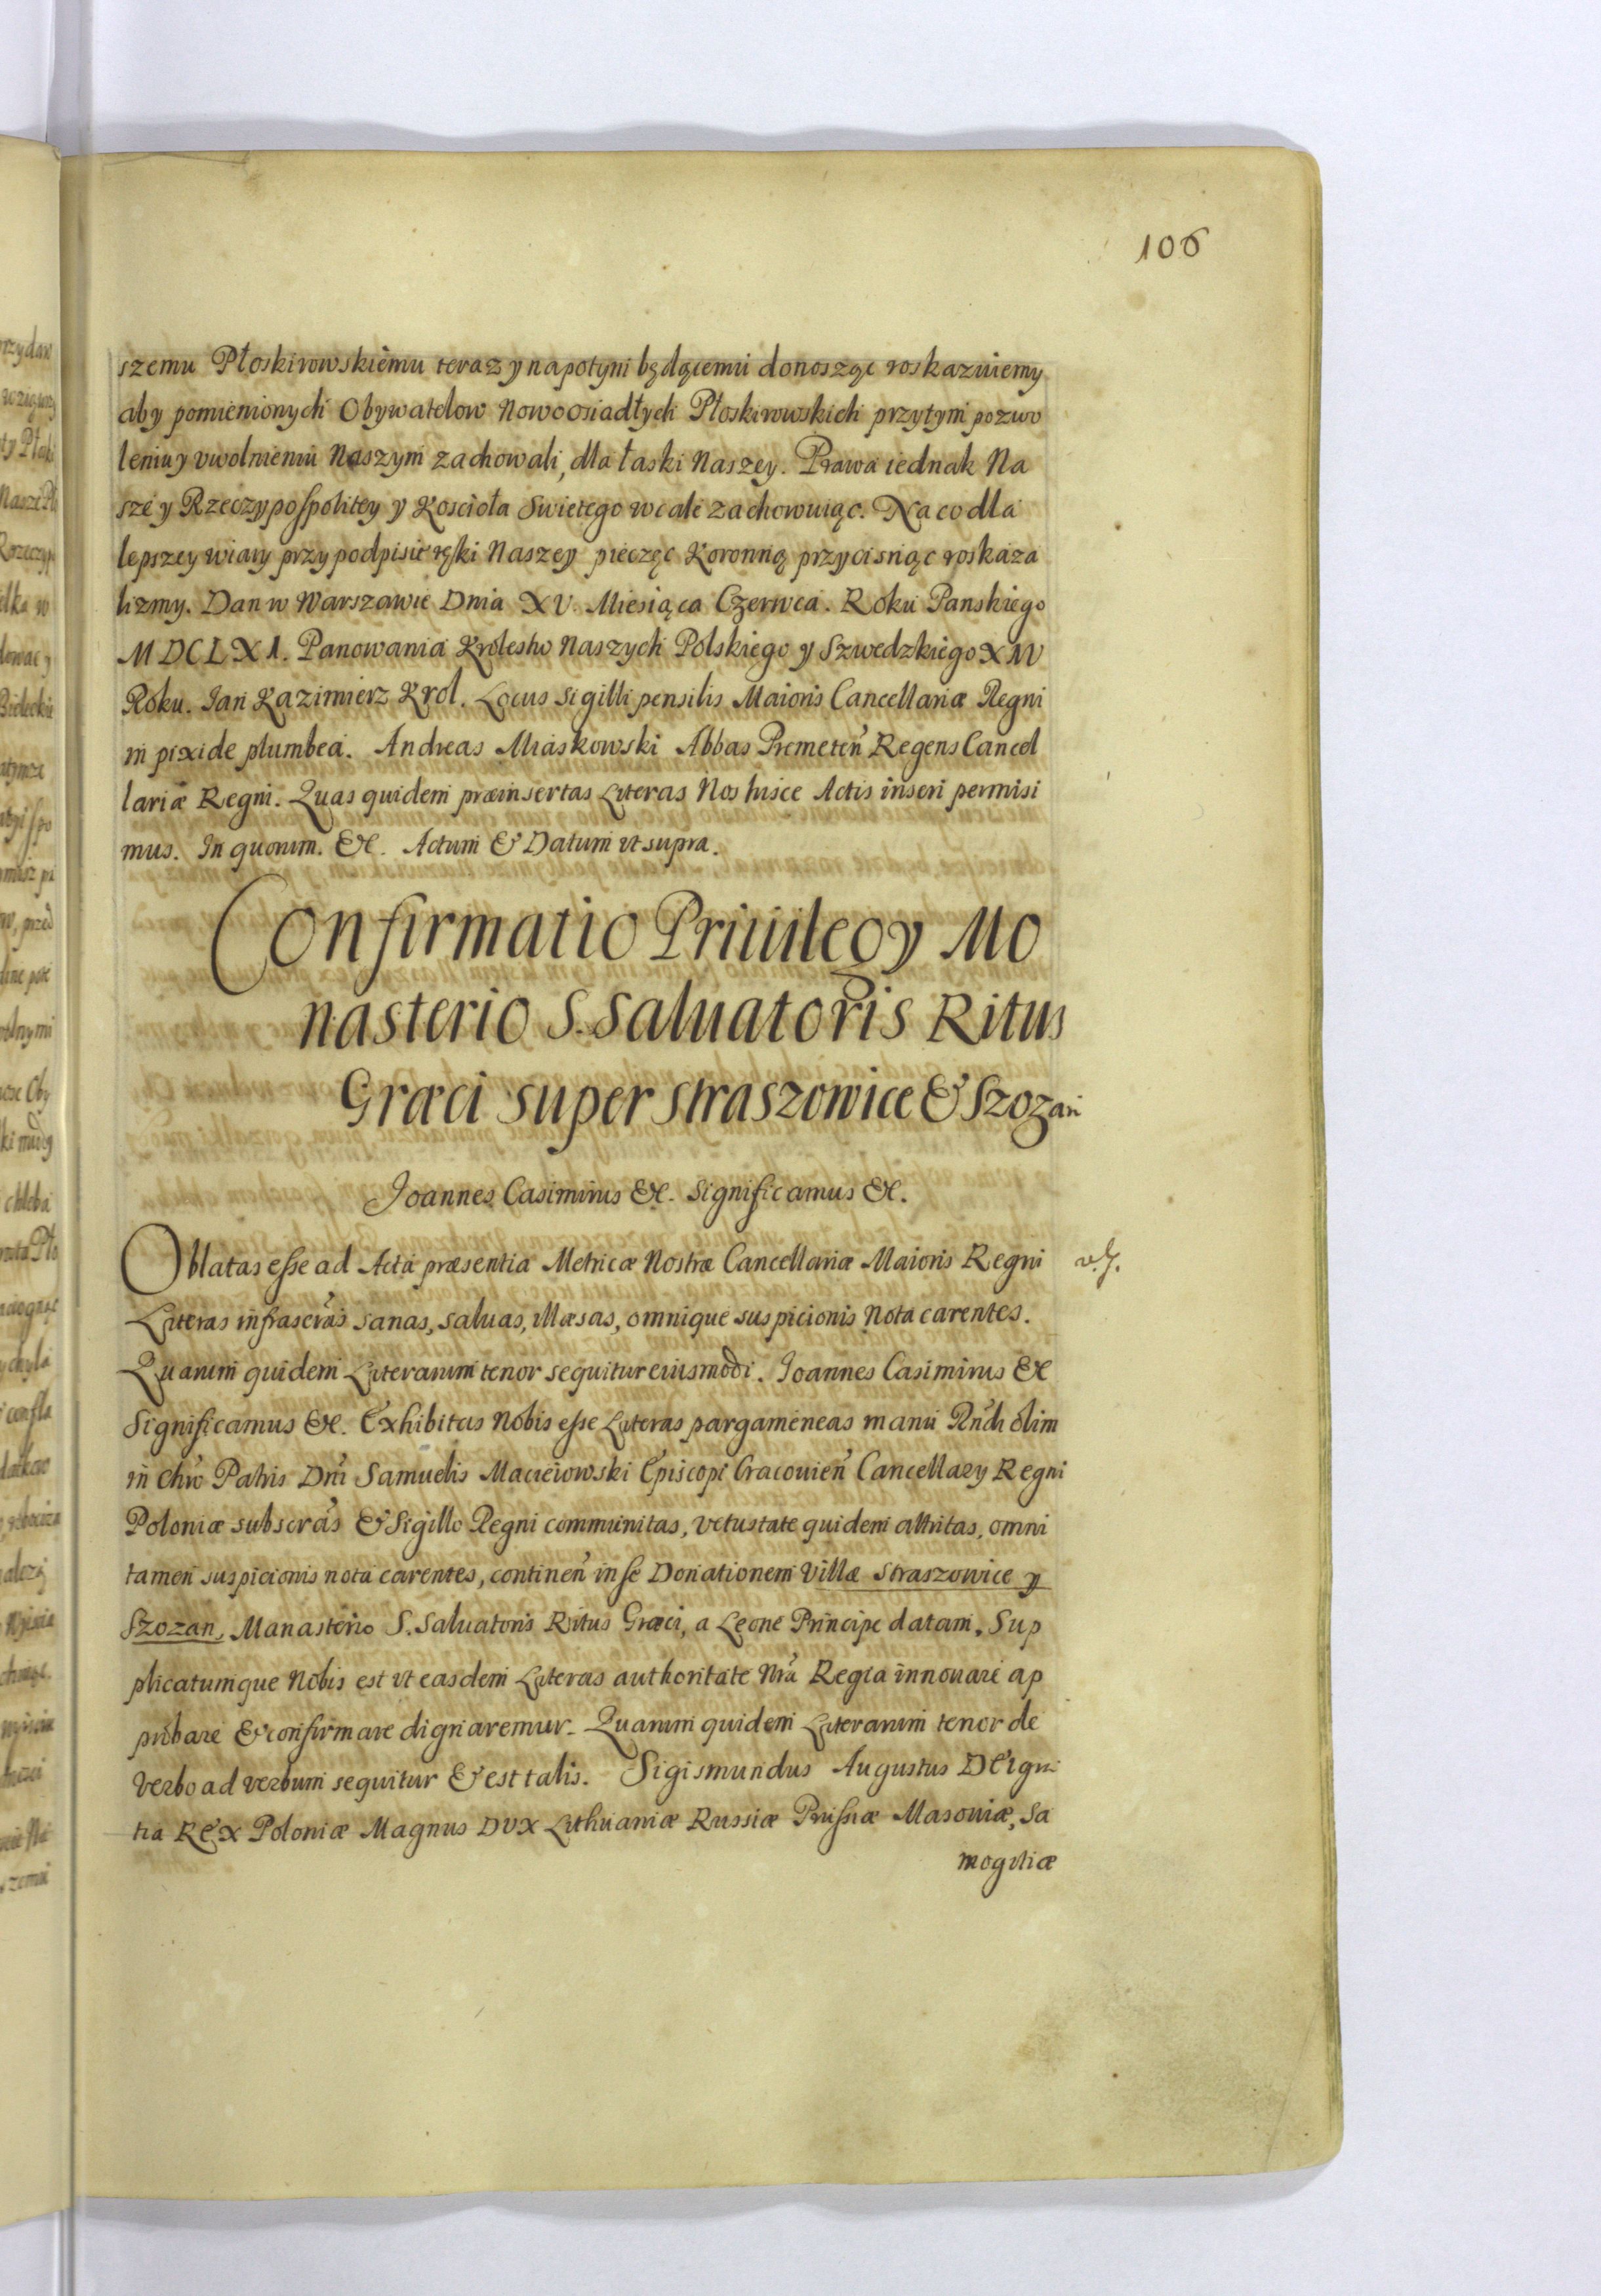 106
szemu Płoskirowskiemu teraz y napotym będącemu donosząc roskazuiemy
aby pomienionych Obywatelow Nowoosiadłych Płoskirowskich przytym pozwo
leniu y uwolnieniu Naszym zachowali, dla łaski Naszey. Prawa iednak Na
sze y Rzeczypospolitey y Kościoła Swietego wcale zachowuiąc. Na co dla
lepszey wiary przy podpisie ręki Naszey pieczęc Koronną przycisnąc roskaza
lizmy. Dan w Warszawie Dnia XV. Miesiąca Czerwca. Roku Panskiego
MDCLXI. Panowania Krolestw Naszych Polskiego y Szwedzkiego XIV
Roku. Jan Kazimierz Krol. Locus Sigilli pensilis Maioris Cancellariæ Regni
in pixide plumbea. Andreas Miaskowski Abbas Premeteñ Regens Cancel
lariæ Regni. Quas quidem præinsertas Literas Nos hisce Actis inseri permisi
mus. In quorum. &c. Actum & Datum ut supra.
Confirmatio Priuilegy Mo
nasterio S. Saluatoris Ritus
Græci super Straszowice & Szozan
Joannes Casimirus &c. Significamus &c.
Oblatas esse ad Acta præsentia Metricæ Nostræ Cancellariæ Maioris Regni
Literas infrascrãs sanas, saluas, illæsas, omnique suspicionis nota carentes.
Quarum quidem Literarum tenor sequitur eiusmodi. Joannes Casimirus &c
Significamus &c. Exhibitas Nobis esse Literas pargameneas manu Rñdi olim
in Chrõ Patris Dñi Samuelis Macieiowski Episcopi Cracouieñ Cancellary Regni
Poloniæ subscrãs & Sigillo Regni communitas, vetustate quidem attritas, omni
tamen suspicionis nota carentes, contineñ in se Donationem Villæ Straszowice y
Szozan, Manasterio S. Saluatoris Ritus Græci, a Leone Principe datam. Sup
plicatumque Nobis est ut easdem Literas authoritate Nrã Regia innouare ap
probare & confirmare dignaremur. Quarum quidem Literarum tenor de
verbo ad verbum sequitur & est talis. Sigismundus Augustus DEI gra
tia REX Poloniæ Magnus DUX Lithuaniæ Russiæ Prussiæ Masouiæ, Sa
mogitiæ